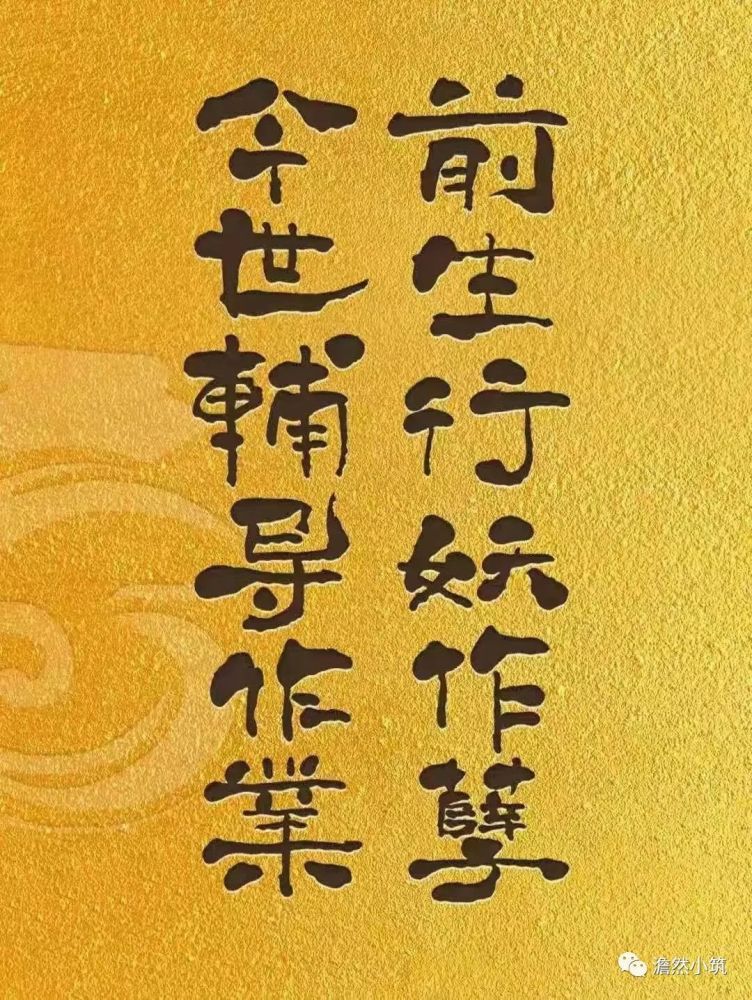 前生行妖作孽
今世輔导作業
澹然小筑